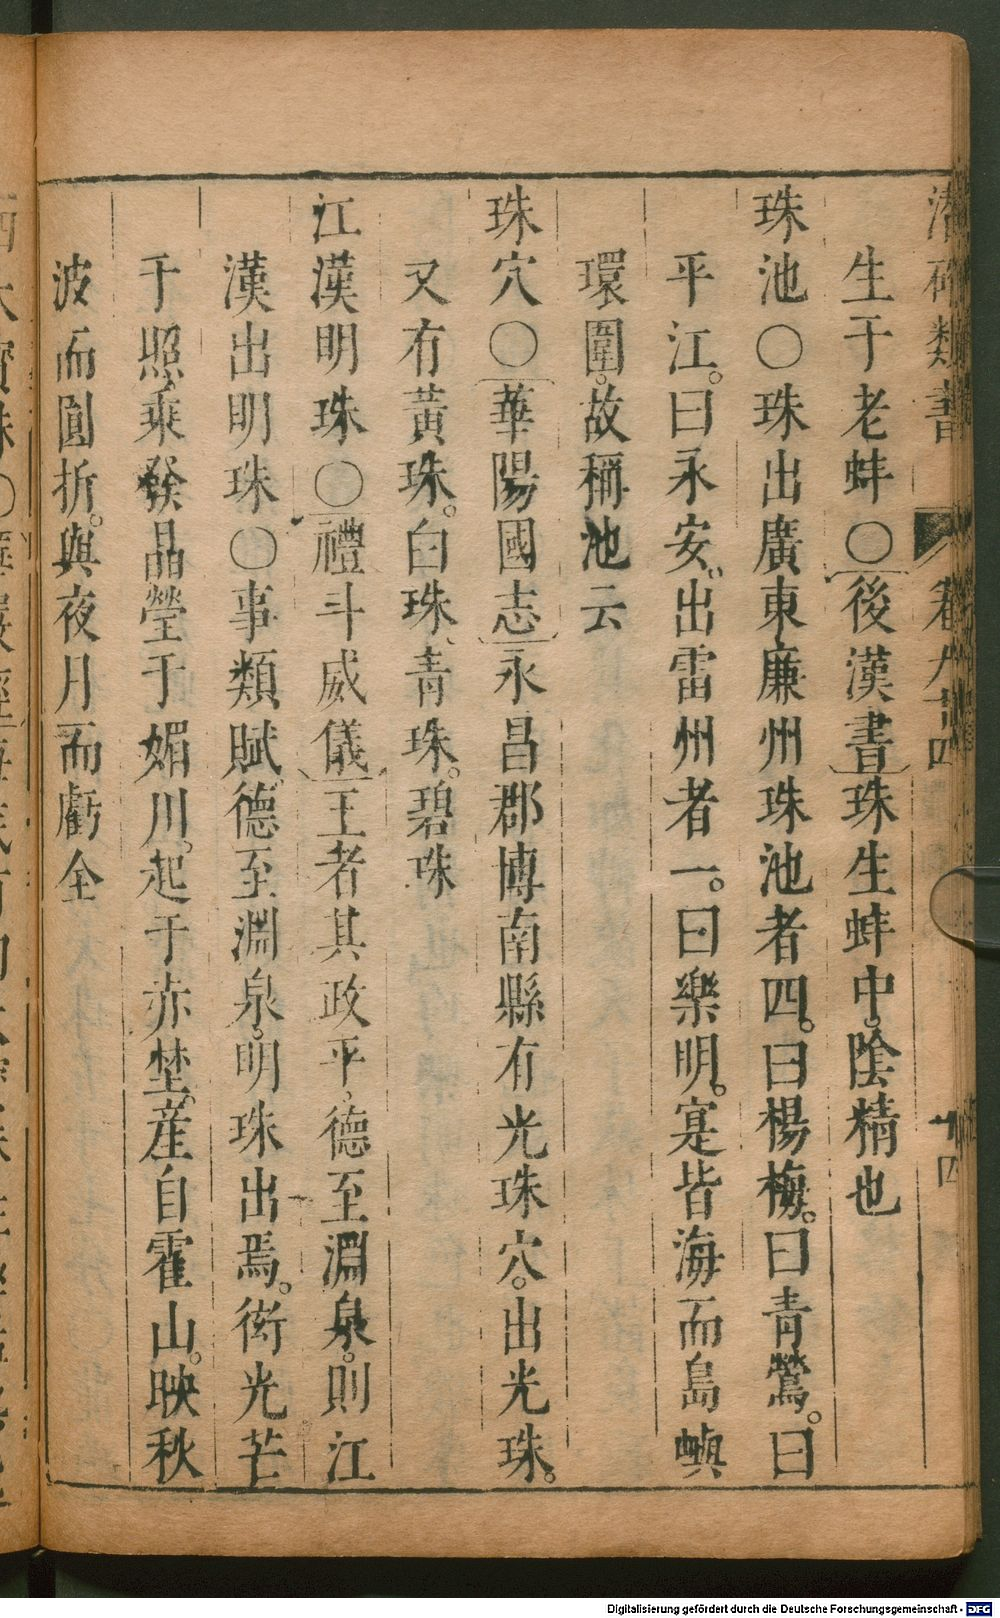 潛確類書 卷九十四 十四
生于老蚌○後漢書珠生蚌中。陰精也
珠池○珠出廣東廉州珠池者四。曰楊梅。曰青鶯。曰
平江。曰永安。出雷州者一。曰樂明。寔皆海而島嶼
環圍。故稱池云
珠穴○華陽國志永昌郡博南縣有光珠穴。出光珠。
又有黃珠。白珠、青珠。碧珠
江漢明珠○禮斗威儀王者其政平。德至淵泉。則江
漢出明珠○事類賦。德至淵泉。明珠出焉。衒光芒
于照乘發晶瑩于媚川。起于赤埜。産自霍山。映秋
波而圓折。與夜月而虧全
Digitalisierung gefördert durch die Deutsche Forschungsgemeinschaft - DFG